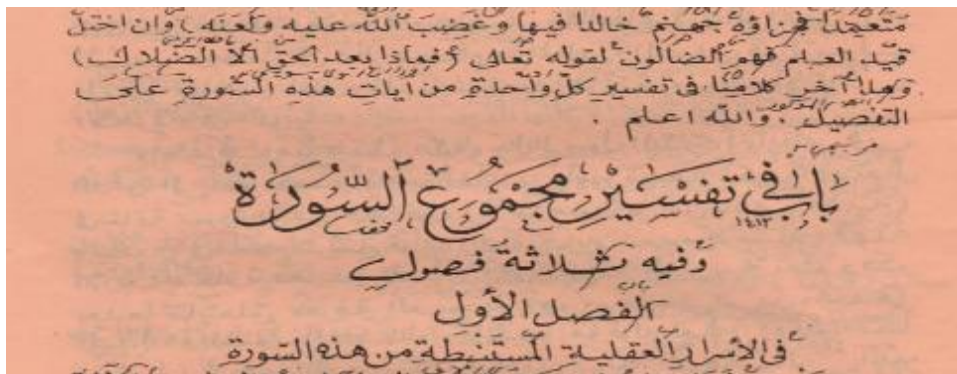 متعمدا فجزاؤه جهنم خالدا فيها وغضب الله عليه ولعنه) وان اختل
قيد العلم فهم الضالون لقوله تعالى (فماذا بعد الحق الا الضلال)
وهذا آخر كلامنا فى تفسير كل واحدة من آيات هذه السورة على
التفصيل. والله اعلم.
باب فى تفسير مجموع السورة
١٤١٣
وفيه ثلاثة فصول
الفصل الأول
فى الأسرار العقلية المستنبطة من هذه السورة